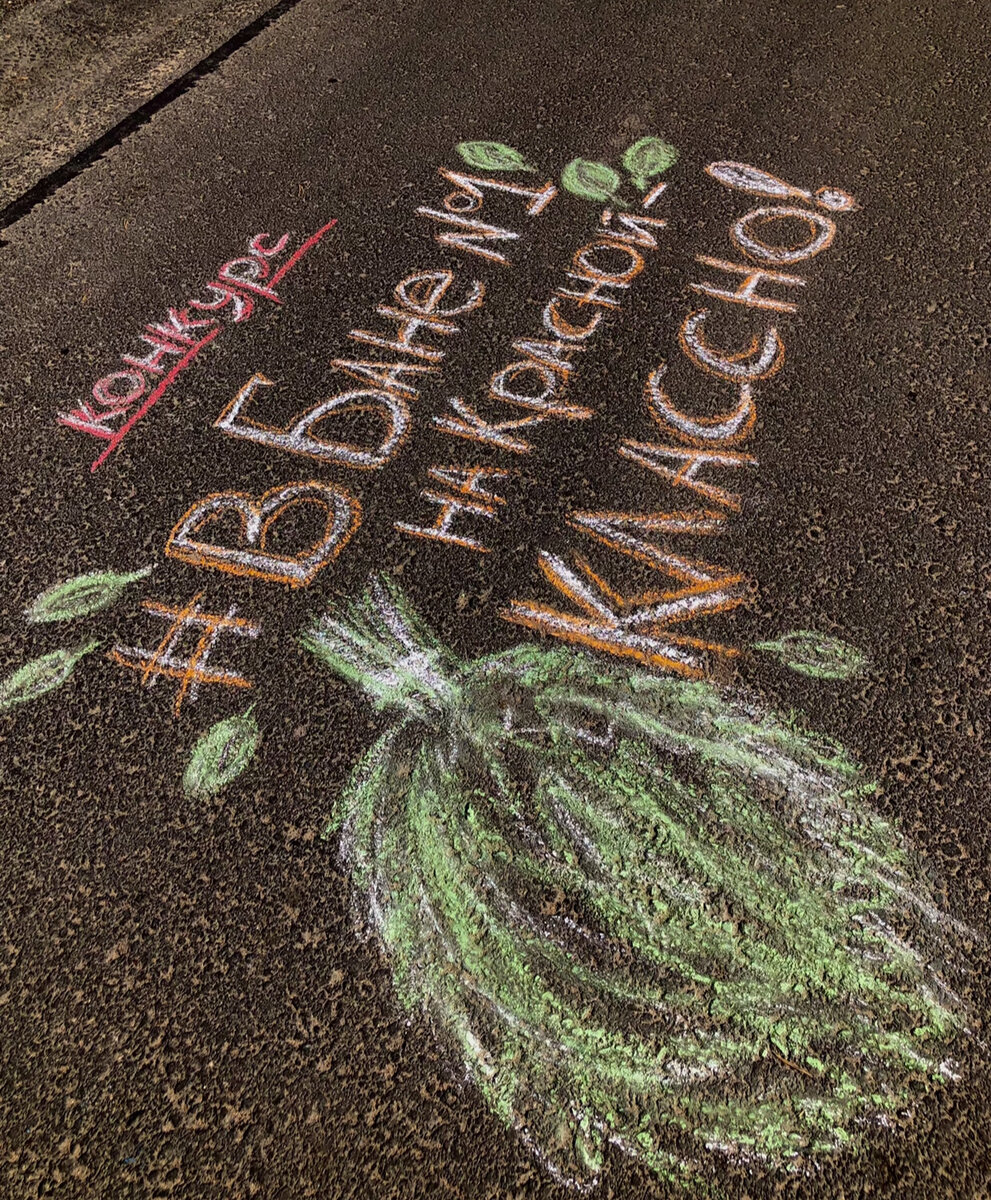 Конкурс
#В Бане №1
на Красной-
Классно!